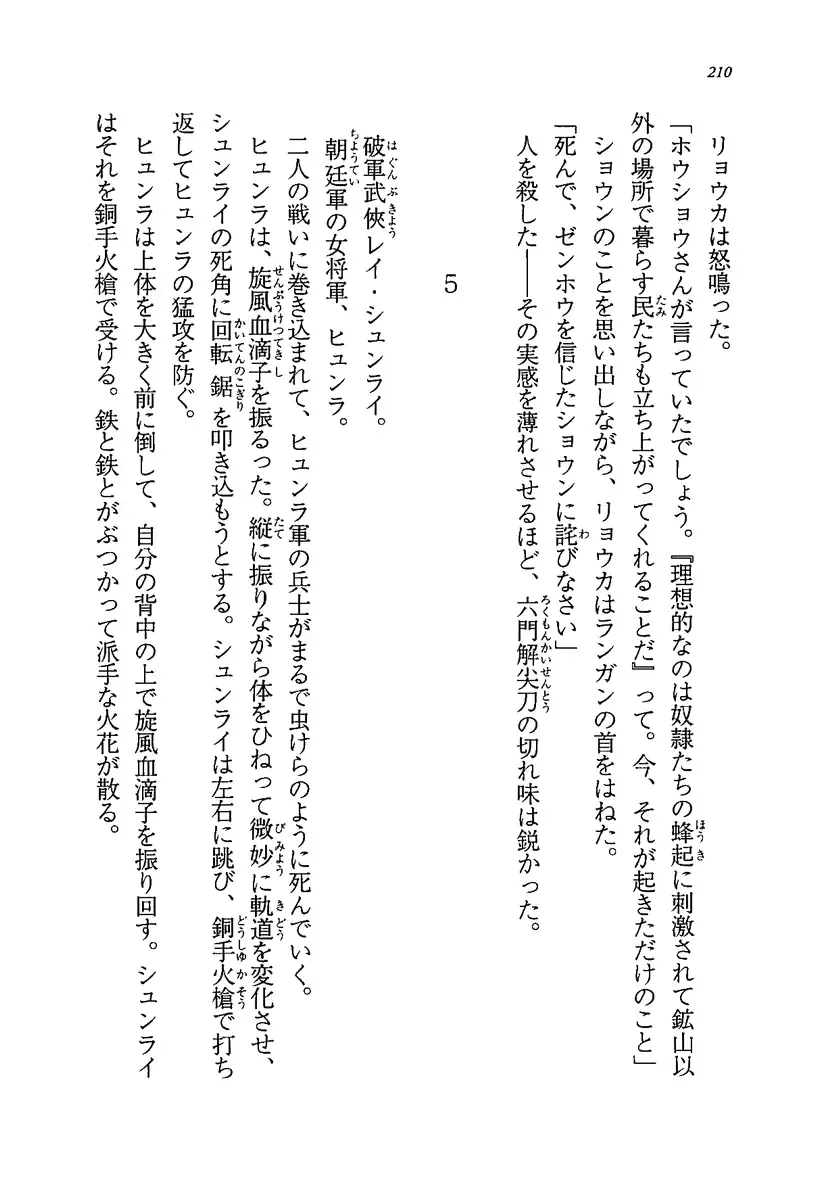 210
リョウカは怒鳴った。
「ホウショウさんが言っていたでしょう。『理想的なのは奴隷たちの蜂起に刺激されて鉱山以
外の場所で暮らす民たちも立ち上がってくれることだ』って。今、それが起きただけのこと」
ショウンのことを思い出しながら、リョウカはランガンの首をはねた。
「死んで、ゼンホウを信じたショウンに詫びなさい」
人を殺した――その実感を薄れさせるほど、六門解尖刀の切れ味は鋭かった。
5
破軍武俠レイ・シュンライ。
朝廷軍の女将軍、ヒュンラ。
二人の戦いに巻き込まれて、ヒュンラ軍の兵士がまるで虫けらのように死んでいく。
ヒュンラは、旋風血滴子を振るった。縦に振りながら体をひねって微妙に軌道を変化させ、
シュンライの死角に回転鋸を叩き込もうとする。シュンライは左右に跳び、銅手火槍で打ち
返してヒュンラの猛攻を防ぐ。
ヒュンラは上体を大きく前に倒して、自分の背中の上で旋風血滴子を振り回す。シュンライ
はそれを銅手火槍で受ける。鉄と鉄とがぶつかって派手な火花が散る。